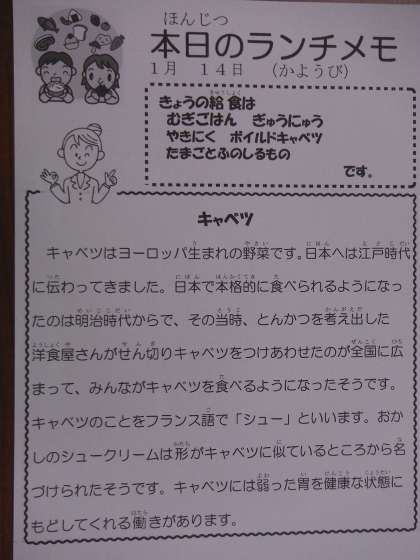 ほんじつ
本日のランチメモ
1月 14日 (かようび)
きょうの給食は
むぎごはん ぎゅうにゅう
やきにく ボイルドキャベツ
たまごとふのしるもの
です。
キャベツ
キャベツはヨーロッパ生まれの野菜です。日本へは江戸時代
に伝わってきました。日本で本格的に食べられるようになっ
たのは明治時代からで、その当時、とんかつを考え出した
洋食屋さんがせん切りキャベツをつけあわせたのが全国に広
まって、みんながキャベツを食べるようになったそうです。
キャベツのことをフランス語で「シュー」といいます。おか
しのシュークリームは形がキャベツに似ているところから名
づけられたそうです。キャベツには弱った胃を健康な状態に
もどしてくれる働きがあります。